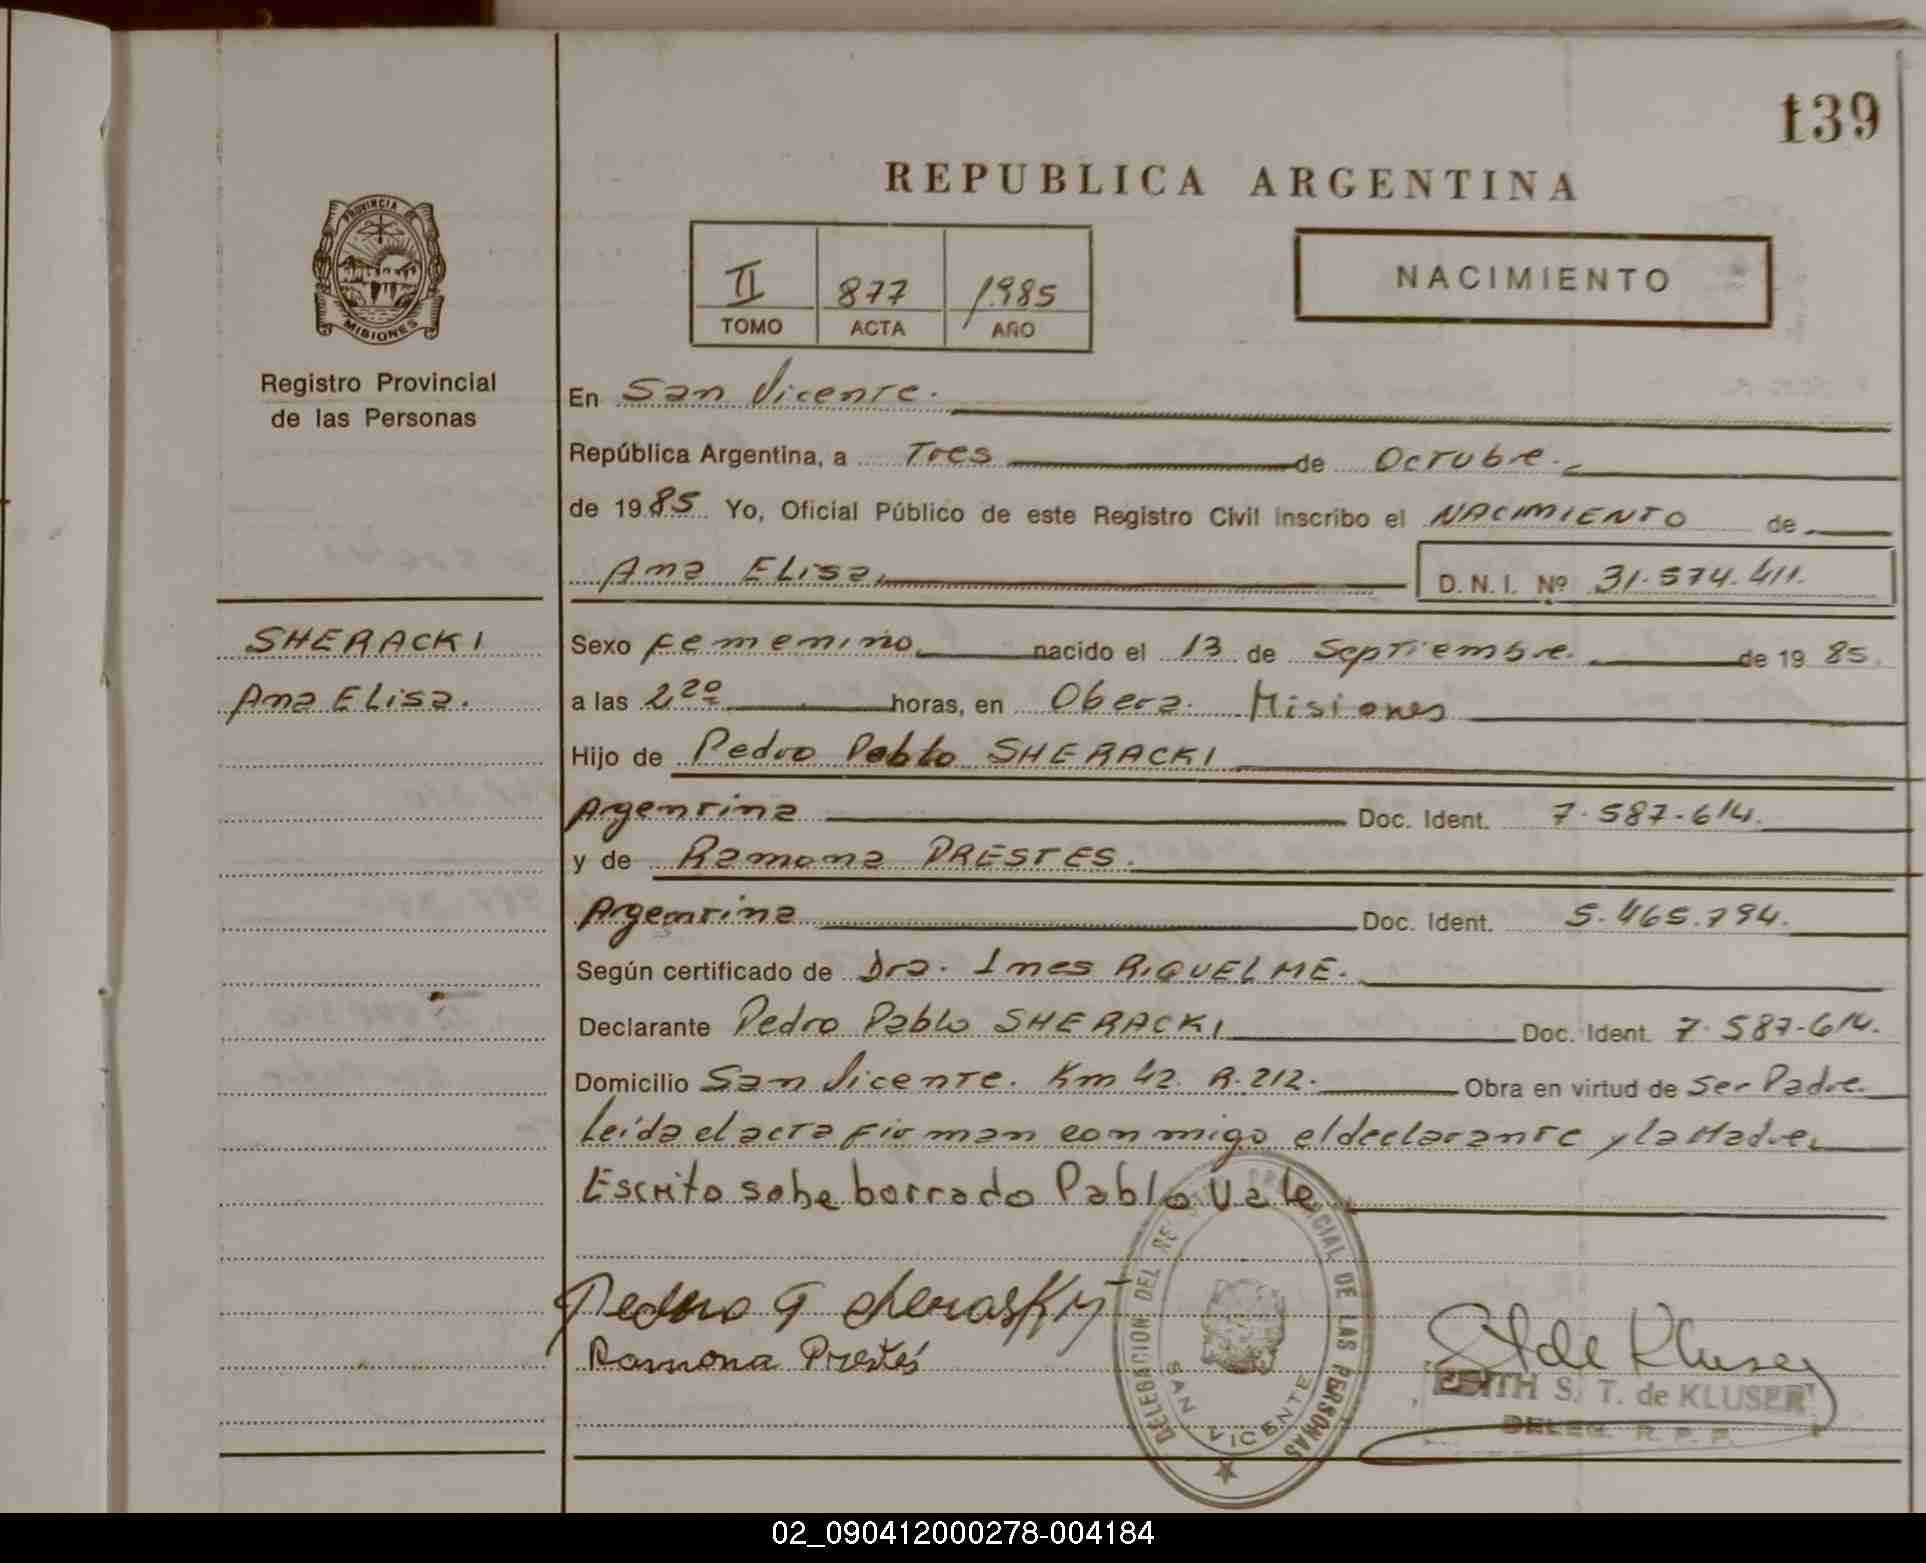 139
REPUBLICA ARGENTINA
PROVINCIA DE
MISIONES
Registro Provincial
de las Personas
II 877 1985
TOMO ACTA AÑO
NACIMIENTO
En San Vicente.
República Argentina, a Tres de Octubre.
de 1985 Yo, Oficial Público de este Registro Civil inscribo el NACIMIENTO de
Ana ELisa, D. N. I. Nº 31.574.411.
SHERACKI
Ana ELisa.
Sexo Femenino nacido el 13 de Septiembre. de 19 85.
a las 2 20 horas, en Obera. Misiones
Hijo de Pedro Pablo SHERACKI
Argentina Doc. Ident. 7.587.614.
y de Ramona PRESTES.
Argentina Doc. Ident. 5.465.794.
Según certificado de Dra. Ines RIQUELME.
Declarante Pedro Pablo SHERACKI Doc. Ident. 7.587.614.
Domicilio San Vicente. Km 42. R.212. Obra en virtud de Ser Padre.
Leída el acta firman conmigo el declarante y la Madre,
Escrito sobe borrado Pablo Vale
Ramona Prestes
DELEGACION DEL REG. PROVINCIAL DE LAS PERSONAS
SAN VICENTE
EDITH S. T. de KLUSER
DELEG. R. P. P.
02_090412000278-004184